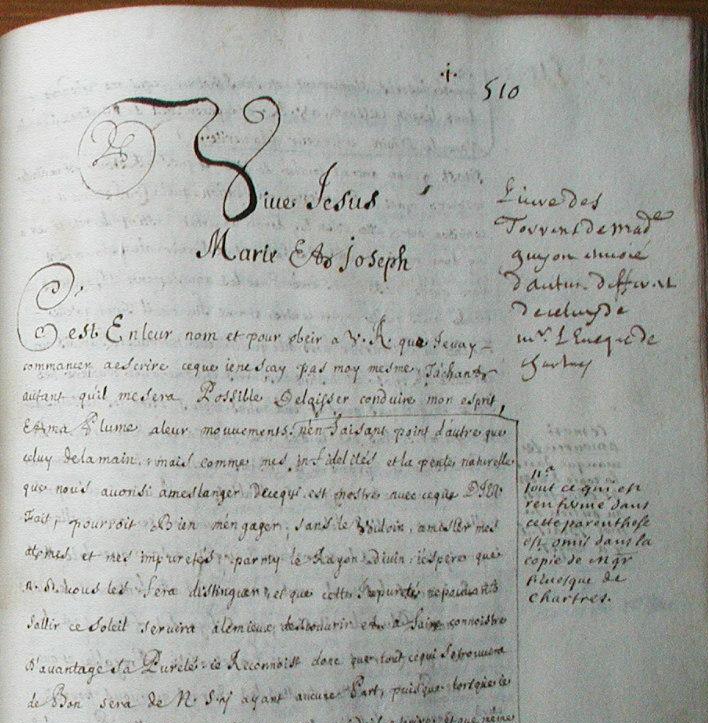 510
Vive Jesus
Marie Et Joseph
Livre des
Torrens de Mad^e
guyon envoié
d'autun. different
de celuy de
m^r. L'Eveque de
chartres
C'est En leur nom et pour obeir a V. R. que Jevay
commancer aescrire ceque jenesçay pas moy mesme Tâchant
autant qu'il mesera Possible Delaisser conduire mon esprit,
Et ma Plume aleur mouvements, n'en faisant point d'autre que
celuy delamain. mais comme mes infidelités et la pente naturelle
que nous avons a meslanger decequi est nostre avec ceque DIEU
Fait, pourroit Bien m'engager, sans le a mesler mes
et mes impuretés, parmy le Rayon divin, j'espere que
vous les sera distinguer, et que cette Impureté nepouvant
sallir ce soleil servira a lemieux et a faire connoistre
D'avantage sa Pureté. je Reconnoist donc que tout cequi setrouvera
de Bon sera de N. S. ayant aucune Part, puisque lorsque je
n^a
tout ce qui est
renfermé dans
cette parenthese
est omis dans la
copie de Mg^r
l'evesque de
Chartres.